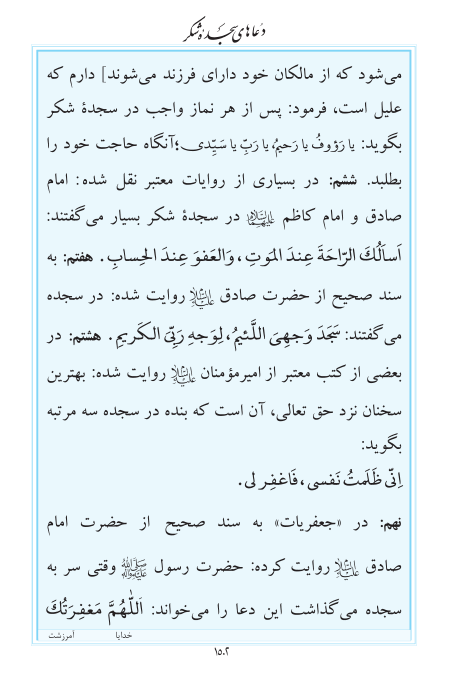 دعاهای سجدهٔ شکر
می‌شود که از مالکان خود دارای فرزند می‌شوند] دارم که
علیل است، فرمود: پس از هر نماز واجب در سجدهٔ شکر
بگوید: یا رَؤوفُ یا رَحیمُ، یا رَبِّ یا سَیِّدی؛ آنگاه حاجت خود را
بطلبد. ششم: در بسیاری از روایات معتبر نقل شده: امام
صادق و امام کاظم علیهماالسلام در سجدهٔ شکر بسیار می‌گفتند:
اَسأَلُكَ الرّاحَةَ عِندَ المَوتِ، وَالعَفوَ عِندَ الحِسابِ. هفتم: به
سند صحیح از حضرت صادق علیه‌السلام روایت شده: در سجده
می‌گفتند: سَجَدَ وَجهِیَ اللَّئیمُ، لِوَجهِ رَبِّیَ الکَریمِ. هشتم: در
بعضی از کتب معتبر از امیرمؤمنان علیه‌السلام روایت شده: بهترین
سخنان نزد حق تعالی، آن است که بنده در سجده سه مرتبه
بگوید:
اِنّی ظَلَمتُ نَفسی، فَاغفِر لی.
نهم: در «جعفریات» به سند صحیح از حضرت امام
صادق علیه‌السلام روایت کرده: حضرت رسول ﷺ وقتی سر به
سجده می‌گذاشت این دعا را می‌خواند: اَللّٰهُمَّ مَغفِرَتُكَ
خدایا آمرزشت
۱۵۰۲